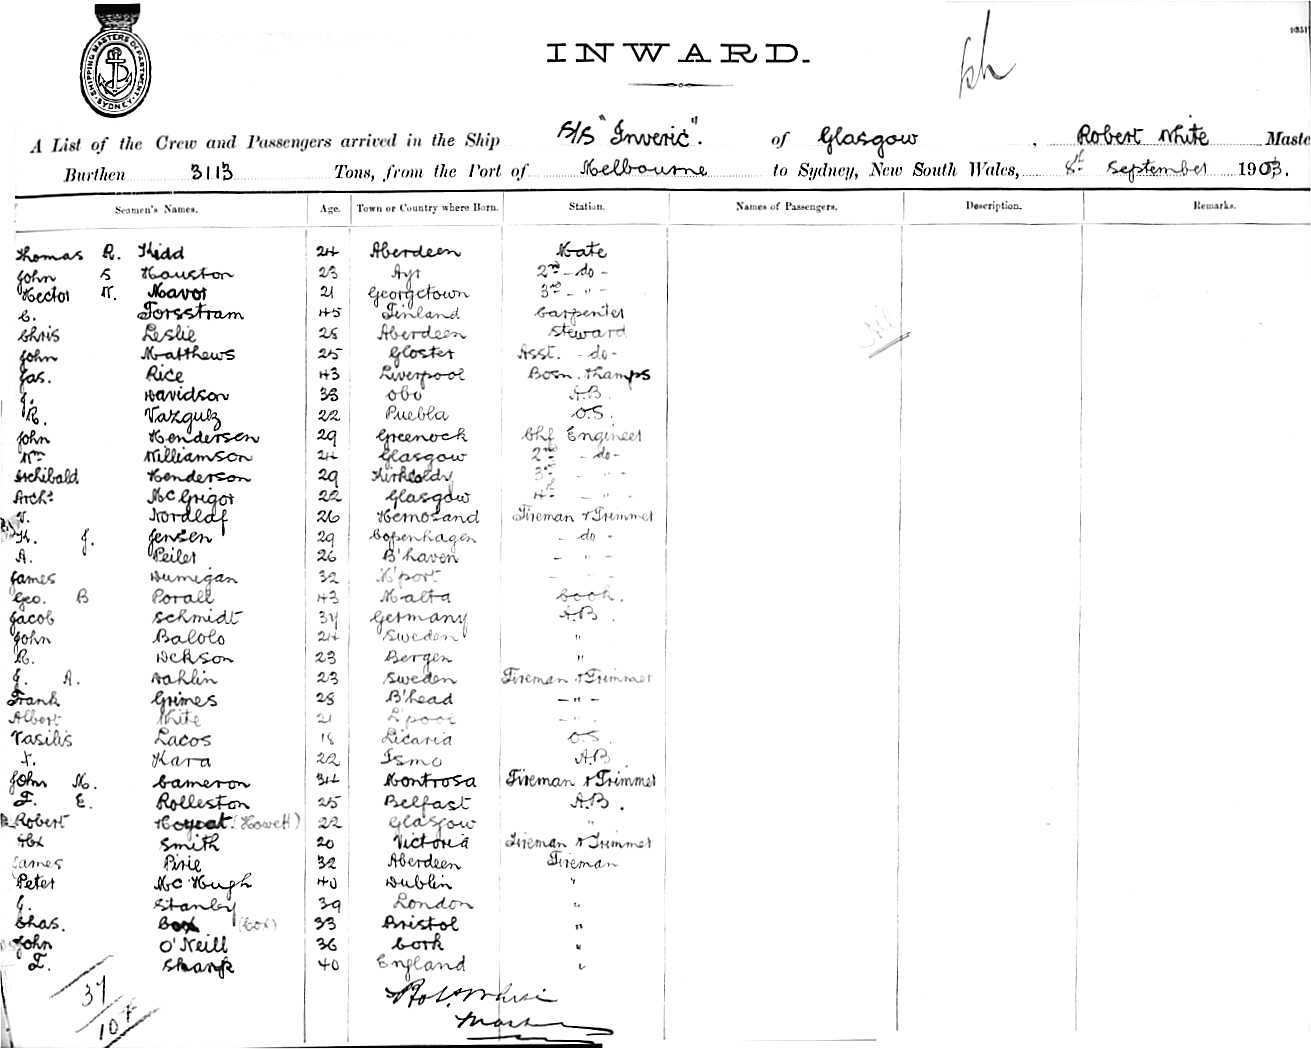 SHIPPING MASTERS DEPARTMENT SYDNEY
INWARD.
A List of the Crew and Passengers arrived in the Ship S/S "Inveric". of Glasgow, Robert White Maste
Burthen 3113 Tons, from the Port of Melbourne to Sydney, New South Wales, 8th September 1903.
Seamen's Names. Age. Town or Country where Born. Station. Names of Passengers. Description. Remarks.
Thomas R. Kidd 24 Aberdeen Mate
John S Houston 23 Ayr 2nd - do -
Hector N. Mavor 21 Georgetown 3rd - " -
C. Forsstram 45 Finland Carpenter
Chris Leslie 28 Aberdeen Steward
John Matthews 25 Gloster Asst. - do -
Jas. Rice 43 Liverpool Bosn. & Lamps
J. Davidson 38 A.B.
R. Vazquez 22 Puebla O.S.
John Henderson 29 Greenock Chf Engineer
Wm Williamson 24 Glasgow 2nd - do -
Archibald Henderson 29 Kirkcaldy 3rd - " -
Archd McGrigor 22 Glasgow 4th - " -
V. Nordlaf 26 Hemosand Fireman & Trimmer
K. J. Jensen 29 Copenhagen - do -
A. Peiler 26 B'haven - " -
James Dumigan 32 N'port - " -
Geo. B Porall 43 Malta Cook.
Jacob Schmidt 37 Germany A.B.
John Balolo 24 Sweden "
R. Dekson 23 Bergen "
J. A. Dahlin 23 Sweden Fireman & Trimmer
Frank Grimes 28 B'head - " -
Albert White 21 L'pool - " -
Vasilis Lacos 18 Licaria O.S.
X. Kara 22 Ismo A.B.
John M. Cameron 34 Montrosa Fireman & Trimmer
F. E. Rolleston 25 Belfast A.B.
Robert (Howett) 22 Glasgow "
Alex Smith 20 Victoria Fireman & Trimmer
James Pirie 32 Aberdeen Fireman
Peter McHugh 40 Dublin "
J. Stanley 39 London "
Chas. Cox (Cox) 33 Bristol "
John O'Neill 36 Cork "
F. Sharp 40 England "
37
Robt. White
Master